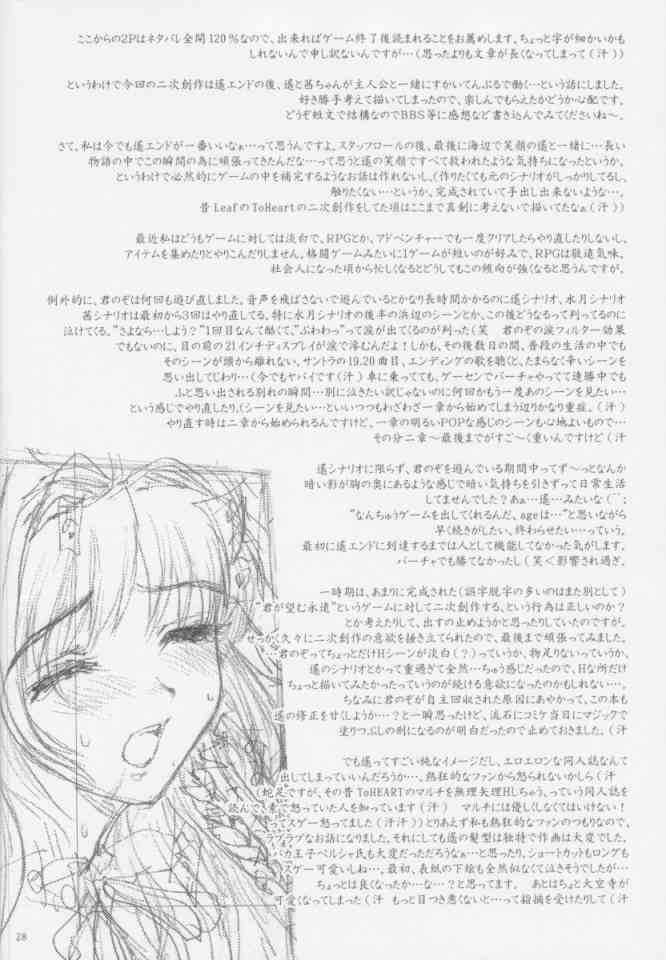 ここからの2Pはネタバレ全開120%なので、出来ればゲーム終了後読まれることをお薦めします。ちょっと字が細かいかも
しれないんで申し訳ないんですが…(思ったよりも文章が長くなってしまって(汗))
というわけで今回の二次創作は遙エンドの後、遙と茜ちゃんが主人公と一緒にすかいてんぷるで働く…という話にしました。
好き勝手考えて描いてしまったので、楽しんでもらえたかどうか心配です。
どうぞ短文で結構なのでBBS等に感想など書き込んでみてくださいね〜。
さて、私は今でも遙エンドが一番いいなぁ…って思うんですよ。スタッフロールの後、最後に海辺で笑顔の遙と一緒に…長い
物語の中でこの瞬間の為に頑張ってきたんだな…って思うと遙の笑顔ですべて救われたような気持ちになったというか。
というわけで必然的にゲームの中を補完するようなお話は作れないし、(作りたくても元のシナリオがしっかりしてるし。
触りたくない…というか、完成されていて手出し出来ないような…。
昔LeafのToHeartの二次創作をしてた頃はここまで真剣に考えないで描いてたなぁ(汗))
最近私はどうもゲームに対しては淡白で、RPGとか、アドベンチャーでも一度クリアしたらやり直したりしないし、
アイテムを集めたりとやりこんだりしません。格闘ゲームみたいに1ゲームが短いのが好みで、RPGは敬遠気味。
社会人になった頃から忙しくなるとどうしてもこの傾向が強くなると思うんですが。
例外的に、君のぞは何回も遊び直しました。音声を飛ばさないで遊んでいるとかなり長時間かかるのに遙シナリオ、水月シナリオ
茜シナリオは最初から3回はやり直してる。特に水月シナリオの後半の浜辺のシーンとか、この後どうなるって判ってるのに
泣けてくる。"さよなら…しよう?"1回目なんて酷くて、"ぶわわっ"って涙が出てくるのが判った(笑 君のぞの涙フィルター効果
でもないのに、目の前の21インチディスプレイが涙で滲むんだよ!しかも、その後数日の間、普段の生活の中でも
そのシーンが頭から離れない。サントラの19,20曲目、エンディングの歌を聴くと、たまらなく辛いシーンを
思い出してじわり…(今でもヤバイです(汗) 車に乗ってても、ゲーセンでバーチャやってて連勝中でも
ふと思い出される別れの瞬間…別に泣きたい訳じゃないのに何回かもう一度あのシーンを見たい…
という感じでやり直したり。(シーンを見たい…といいつつもわざわざ一章から始めてしまう辺りかなり重症。(汗)
やり直す時は二章から始められるんですけど、一章の明るいPOPな感じのシーンも心地よいもので…
その分二章〜最後までがすご〜く重いんですけど(汗
遙シナリオに限らず、君のぞを遊んでいる期間中ってず〜っとなんか
暗い影が胸の奥にあるような感じで暗い気持ちを引きずって日常生活
してませんでした?あぁ…遙…みたいな(￣￣;
"なんちゅうゲームを出してくれるんだ、ageは…"と思いながら
早く続きがしたい、終わらせたい…っていう。
最初に遙エンドに到達するまでは人として機能してなかった気がします。
バーチャでも勝てなかったし(笑<影響され過ぎ。
一時期は、あまりに完成された(誤字脱字の多いのはまた別として)
"君が望む永遠"というゲームに対して二次創作する、という行為は正しいのか?
とか考えたりして、出すの止めようかと思ったりしていたのですが。
せっかく久々に二次創作の意欲を掻き立てられたので、最後まで頑張ってみました。
君のぞってちょっとだけHシーンが淡白(?)っていうか、物足りないっていうか、
遙のシナリオとかって重過ぎて全然…ちゅう感じだったので、Hな所だけ
ちょっと描いてみたかったっていうのが続ける意欲になったのかもしれない…。
ちなみに君のぞが自主回収された原因にあやかって、この本も
遙の修正を甘くしようか…?と一瞬思ったけど、流石にコミケ当日にマジックで
塗りつぶしの刑になるのが明白だったので止めておきました。(汗
でも遙ってすごい純なイメージだし、エロエロンな同人誌なんて
出してしまっていいんだろうか…、熱狂的なファンから怒られないかしら(汗
(蛇足ですが、その昔ToHEARTのマルチを無理矢理Hしちゃう、っていう同人誌を
読んで、素で怒っていた人を知っています(汗) マルチには優しくしなくてはいけない!
ってスゲー怒ってました(汗汗)) とりあえず私も熱狂的なファンのつもりなので、
ラブラブなお話になりました。それにしても遙の髪型は独特で作画は大変でした。
バカ王子ペルシャ氏も大変だっただろうなぁ…と思ったり。ショートカットもロングも
スゲー可愛いしね…。最初、表紙の下絵も全然似なくて泣きそうでしたが…
ちょっとは良くなったか…な…?と思ってます。 あとはちょと大空寺が
可愛くなってしまった(汗 もっと目つき悪くないと…って指摘を受けたりして(汗
28